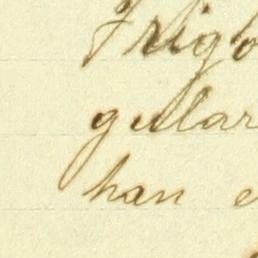 Frigo
gular
han e